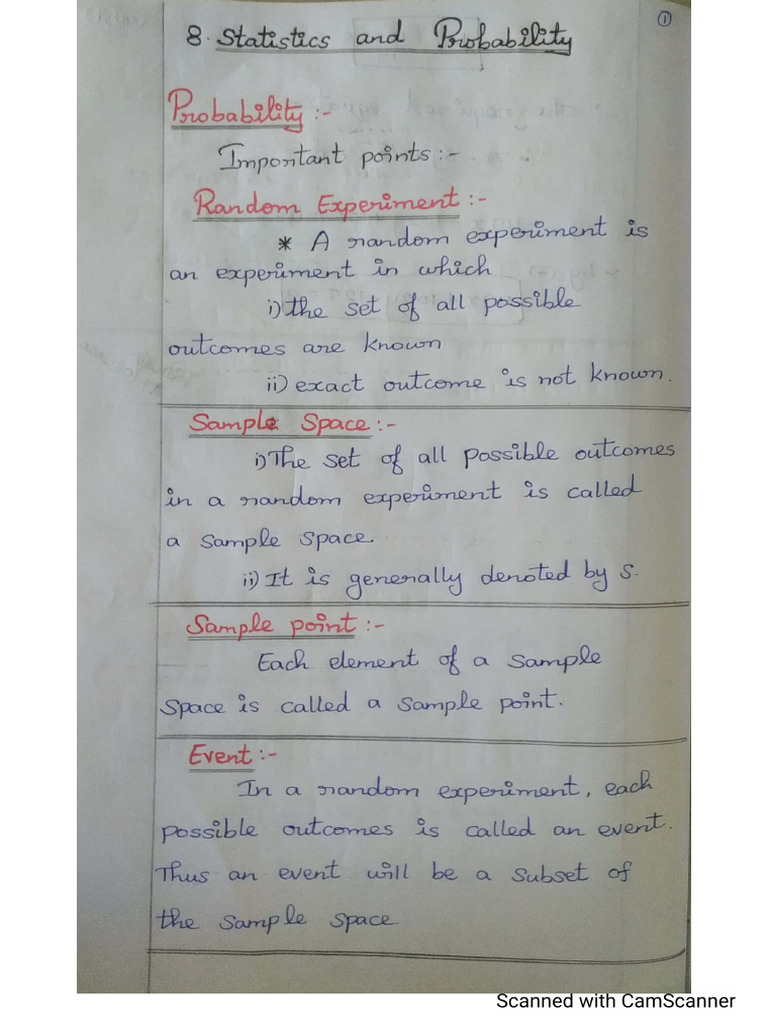 ①
8. Statistics and Probability
Probability :-
Important points :-
Random Experiment :-
* A random experiment is
an experiment in which
i) the set of all possible
outcomes are known
ii) exact outcome is not known.
Sample Space :-
i) The set of all possible outcomes
in a random experiment is called
a sample space.
ii) It is generally denoted by S.
Sample point :-
Each element of a sample
space is called a sample point.
Event :-
In a random experiment, each
possible outcomes is called an event.
Thus an event will be a subset of
the sample space.
Scanned with CamScanner